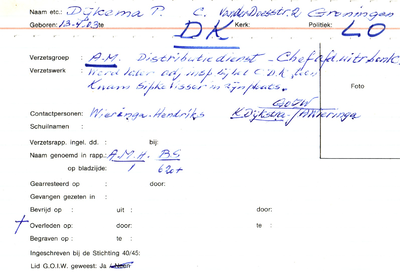 Naam etc.: Dijkema P. C. v.d. Doesstr. 2 Groningen
Geboren: 13.4.03 te Kerk: Politiek:
DK LO
Verzetsgroep: A.M. Distributiedienst - Chef afd. uitr.
Verzetswerk: Werd later adj. insp. bij bel C.D.K. den
Knaum Sipke Visser in zijn plaats.
Foto
GOIW
Contactpersonen: Wieringa-Hendriks K. Dijkstra / Wieringa
Schuilnaam :
Verzetsrapp. ingel. dd. : bij:
Naam genoemd in rapp.: A.M.H. B.S.
op bladzijde: 1
Gearresteerd op : door:
Gevangen gezeten in :
Bevrijd op : uit : door:
Overleden op: : door: te :
Begraven op : te :
Ingeschreven bij de Stichting 40/45:
Lid G.O.I.W. geweest: Ja - Neen